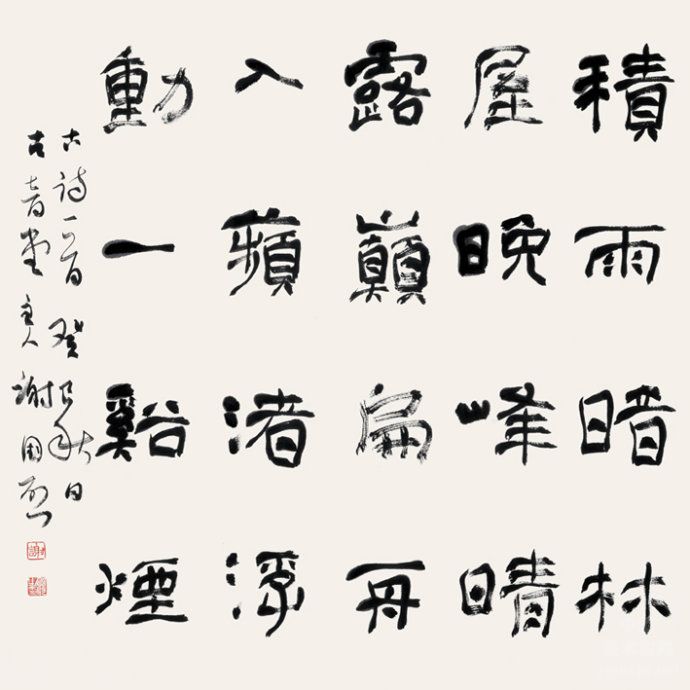 積雨暗林
屋晚峰晴
露巔扁舟
入蘋渚浮
動一谿煙
古詩一首 癸巳秋日
古音堂主人 謝國